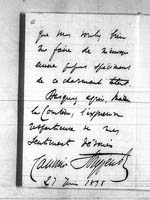 que vous voulez bien
me faire de m'envoyer
encore quelques spécimens
de ce charmant
Daignez agréer, Madame
la Comtesse, l'expression
respectueuse de mes
sentiments dévoués
27 Juin 1895